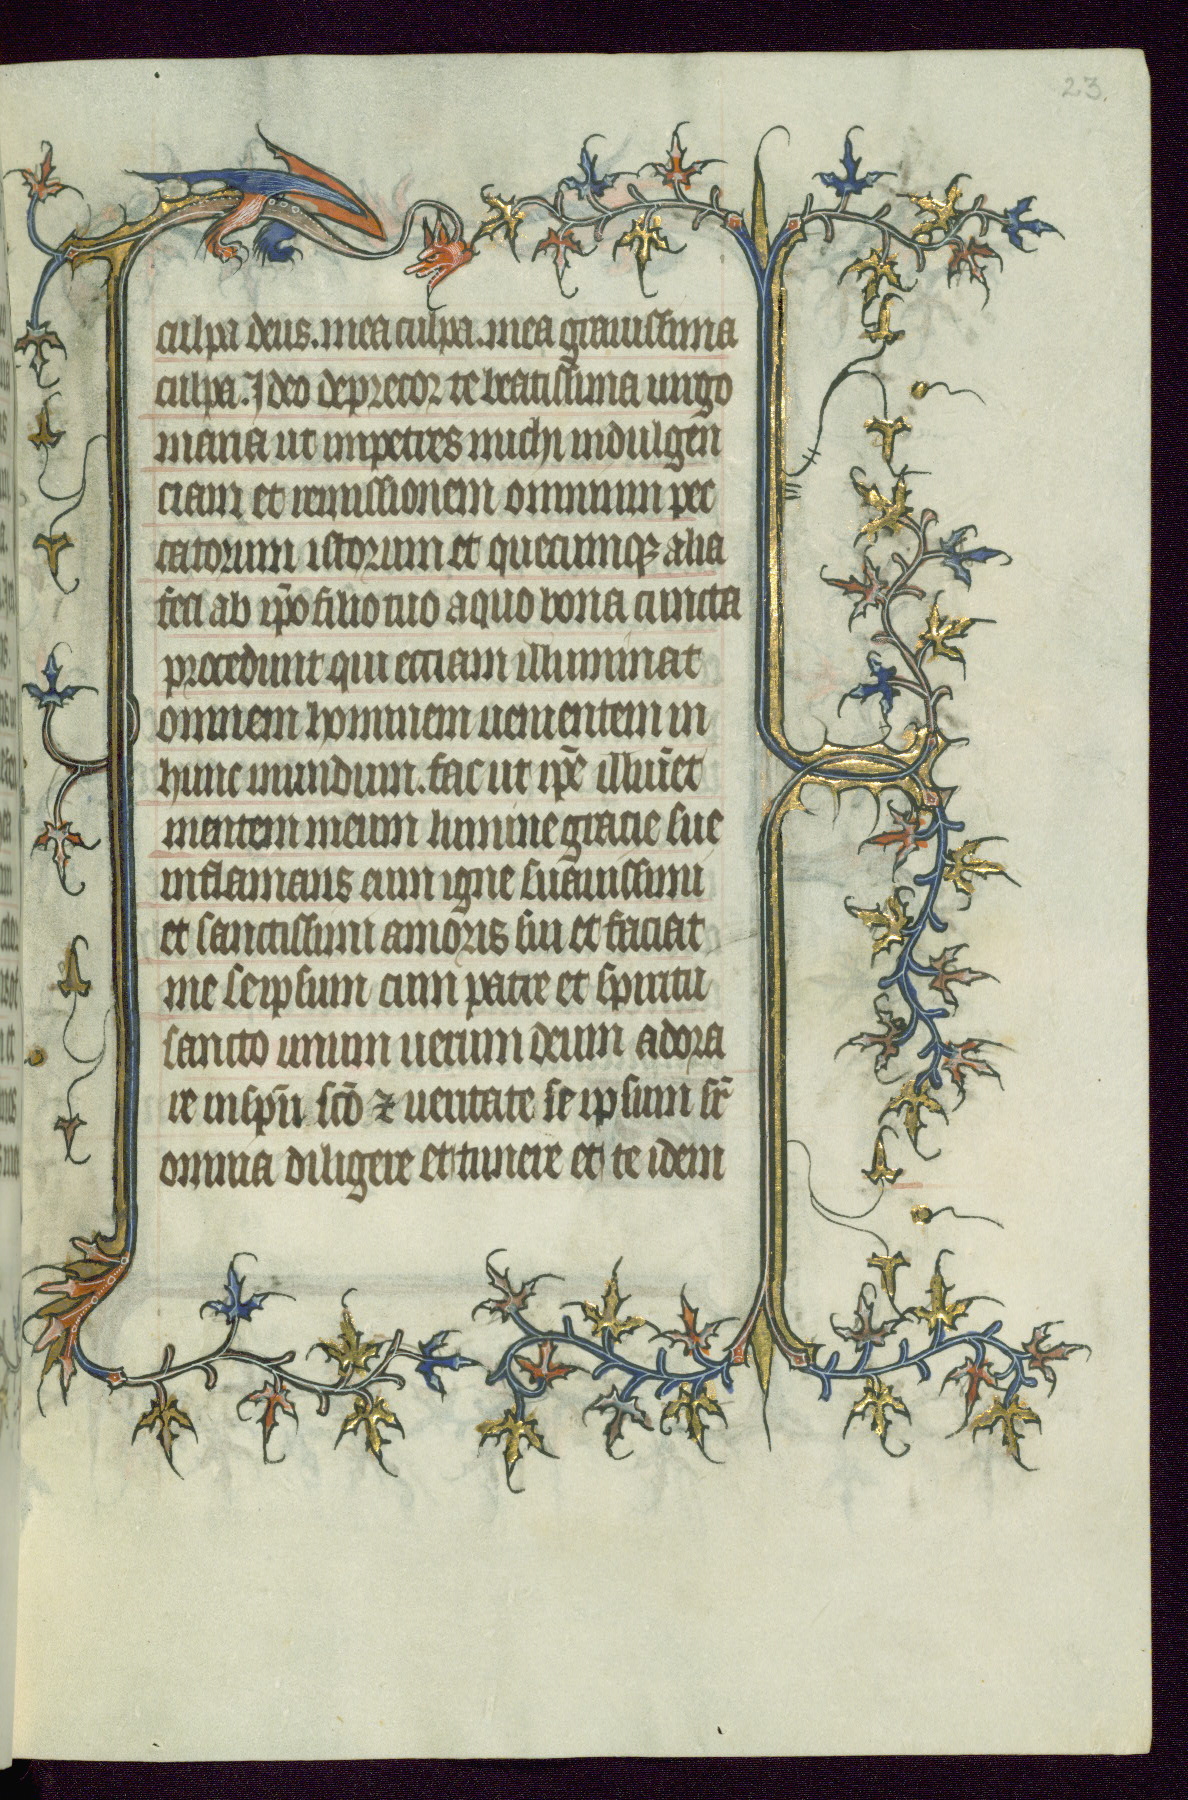 23.
culpa deus. mea culpa. mea grauissima
culpa. Ideo deprecor te beatissima uirgo
maria ut impetres michi indulgen
ciam et remissionem omnium pec
catorum istorum et quecumqꝫ alia
feci ab ip̄o filio tuo a quo bona cuncta
procedunt qui ecciam illuminat
omnem hominem uenientem in
hunc mundum. fac ut ip̄e illum̄et
mentem meum lumine gracie sue
inflamans cum igne suauissimi
et sanctissimi amoris sui et faciat
me seipsum cum patre et spiritu
sancto unum uerum deum adora
re in sp̄u sc̄o ⁊ ueritate se ipsum sr̄
omnia diligere et timere et te idem